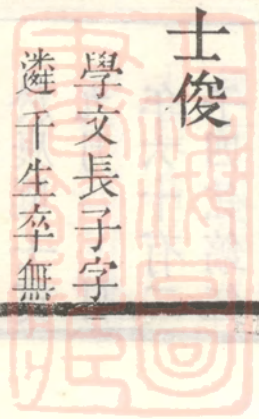 士俊
學文長子字
遴千生卒無